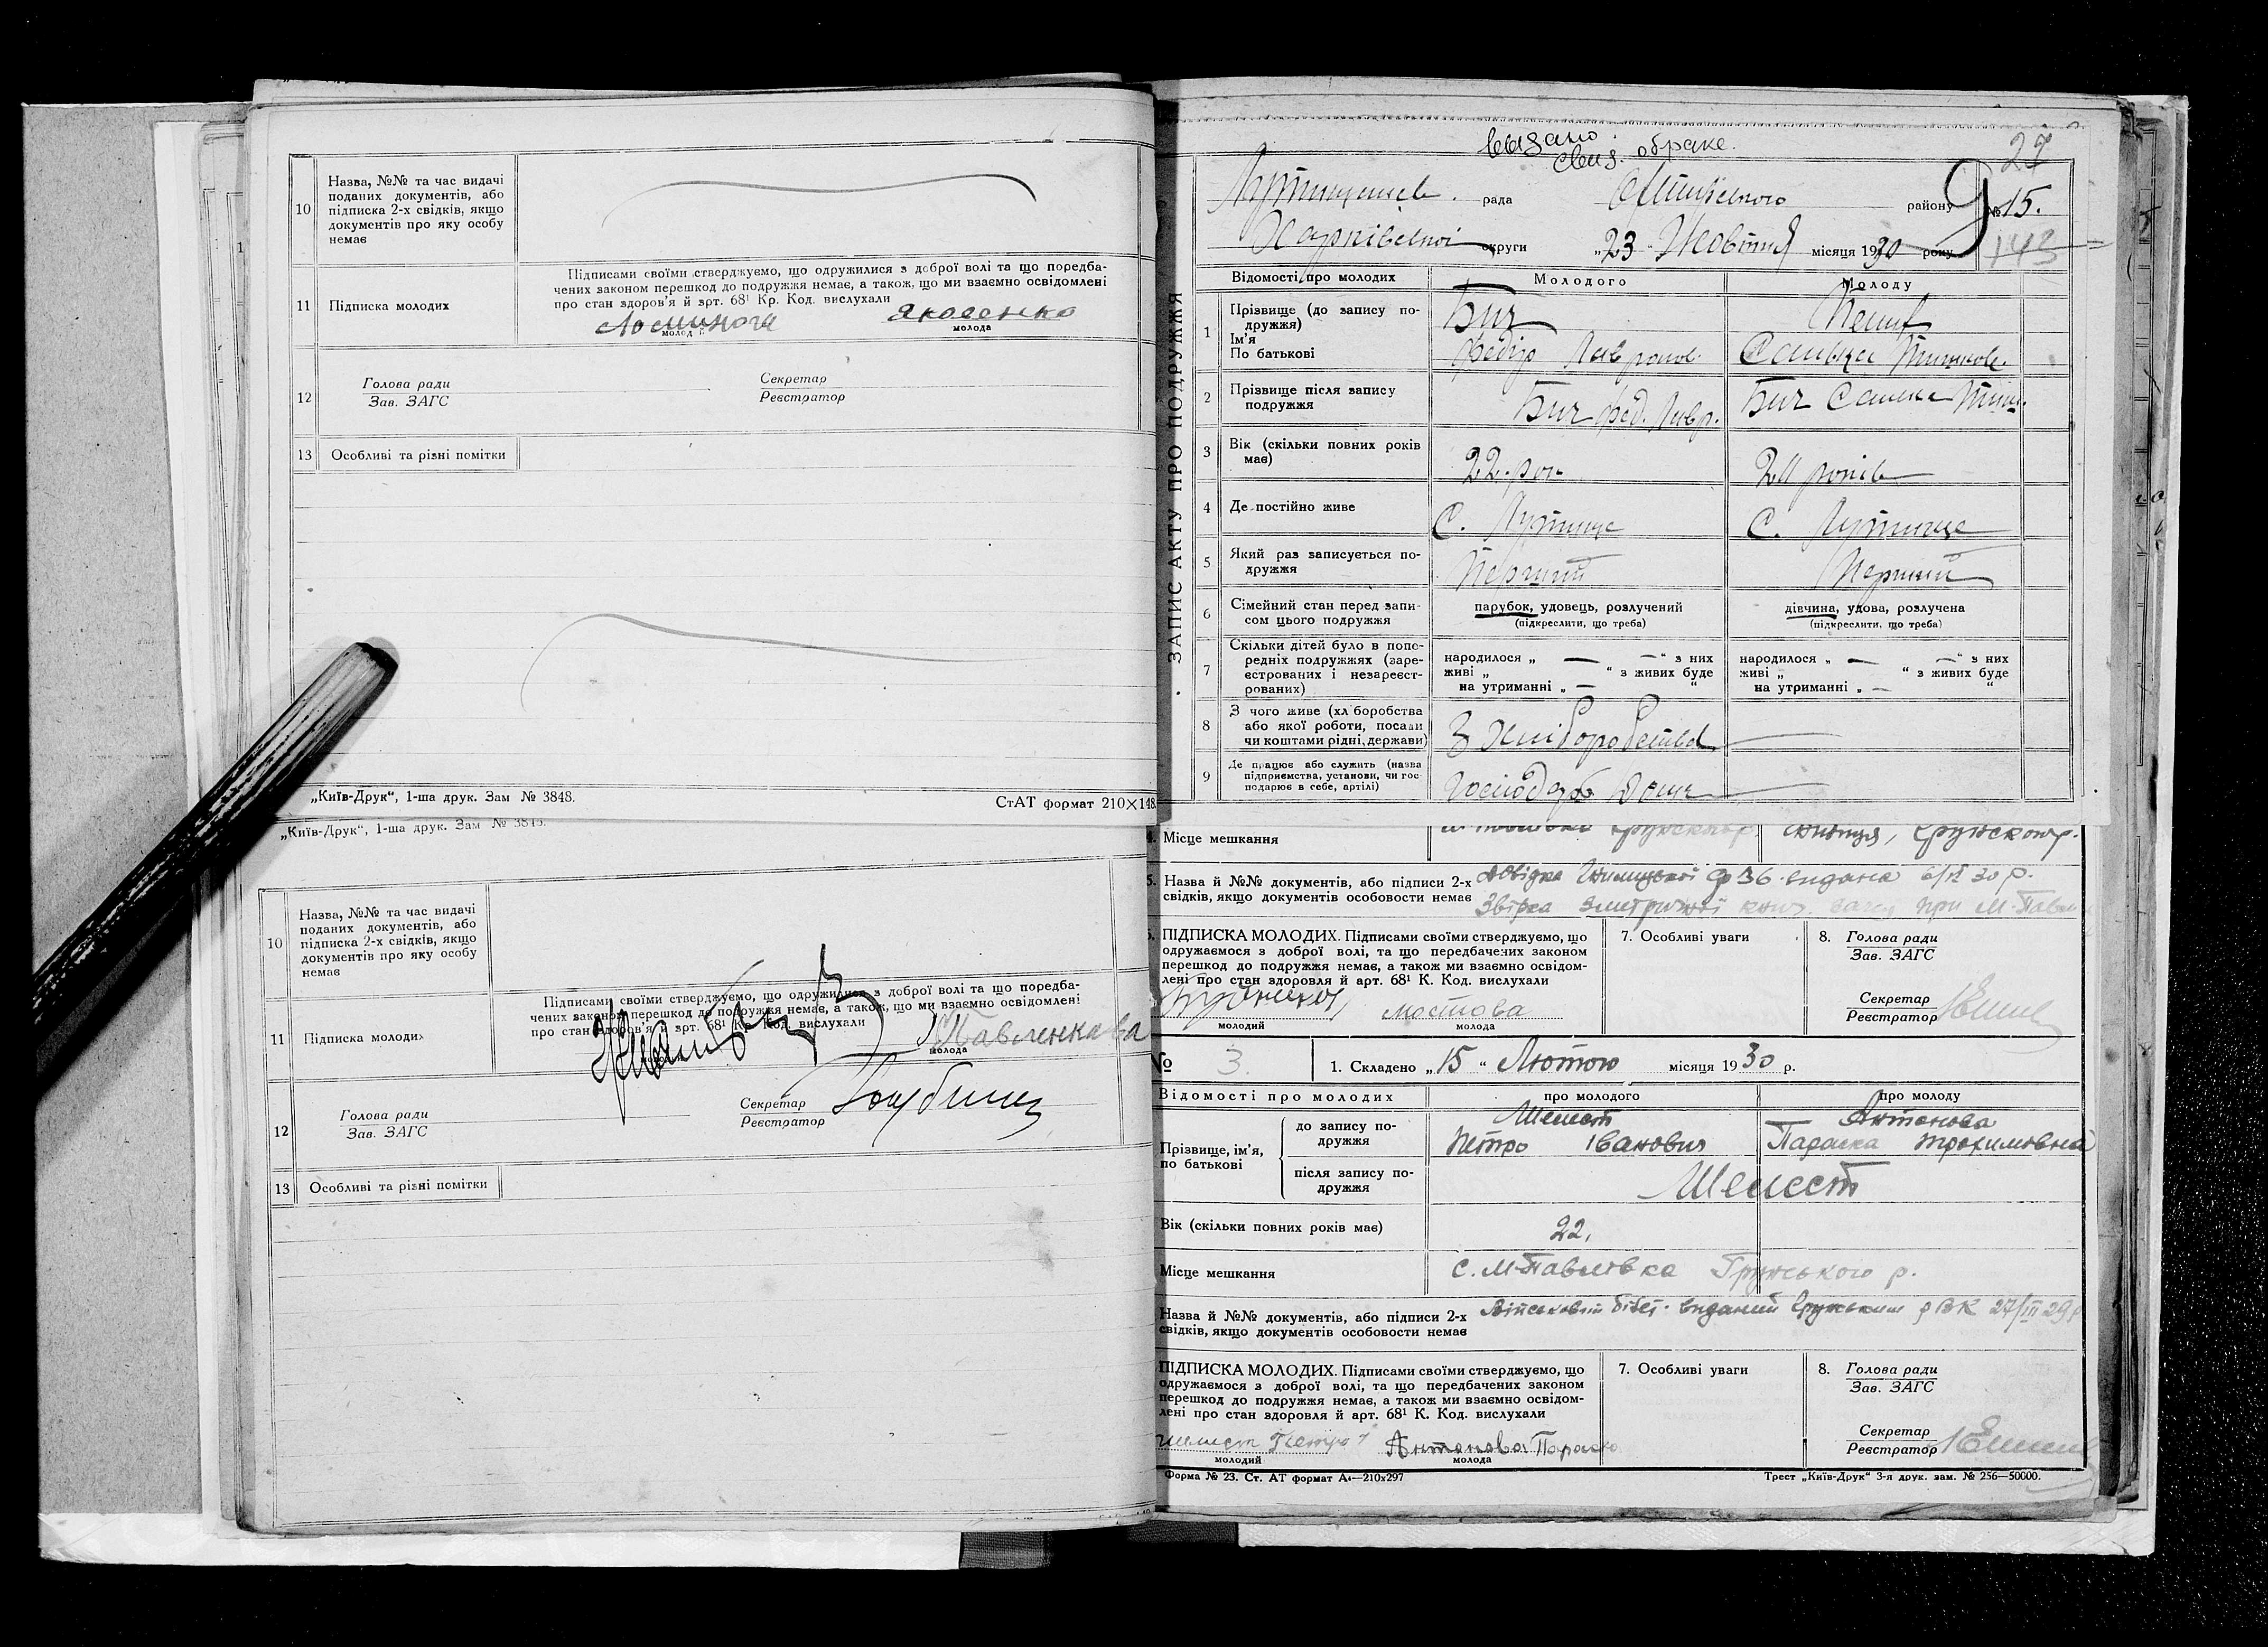 10 Назва, №№ та час видачі
поданих документів, або
підписка 2-х свідків, якщо
документів про яку особу
немає
11 Підписка молодих
Підписами своїми стверджуємо, що одружилися з доброї волі та що передба-
чених законом перешкод до подружжя немає, а також, що ми взаємно освідомлені
про стан здоров'я й арт. 68¹ Кр. Код. вислухали
Яковенко
молода
12 Голова ради
Зав. ЗАГС
Секретар
Реєстратор
13 Особливі та різні помітки
„Київ-Друк“, 1-ша друк. Зам № 3848.
СтАТ формат 210×148
„Київ-Друк“, 1-ша друк. Зам № 3848.
10 Назва, №№ та час видачі
поданих документів, або
підписка 2-х свідків, якщо
документів про яку особу
немає
11 Підписка молодих
Підписами своїми стверджуємо, що одружилися з доброї волі та що поредба-
чених законом перешкод до подружжя немає, а також, що ми взаємно освідомлені
про стан здоров'я й арт. 68¹ Кр. Код. вислухали
Павленкова
молода
12 Голова ради
Зав. ЗАГС
Секретар
Реєстратор
13 Особливі та різні помітки
ЗАПИС АКТУ ПРО ПОДРУЖЖЯ
выдано
свид. о браке.
27
рада району № 15.
Харківської округи „23“ Жовтня місяця 1930 року 143
Відомості про молодих Молодого Молоду
1 Прізвище (до запису по-
дружжя)
Ім'я
По батькові
Бич
Федір Лавронов.
2 Прізвище після запису
подружжя
Бич Фед. Лавр.
Бич
3 Вік (скільки повних років
має)
22 рок
років
4 Де постійно живе
С. Лутище
С. Лутище
5 Який раз записується по-
дружжя
Перший
Перший
6 Сімейний стан перед запи-
сом цього подружжя
парубок, удовець, розлучений
(підкреслити, що треба)
дівчина, удова, розлучена
(підкреслити, що треба)
7 Скільки дітей було в попе-
редніх подружжях (заре-
єстрованих і незареєст-
рованих)
народилося „ — —“ з них
живі „ “ з живих буде
на утриманні „ — “
народилося „ — —“ з них
живі „ “ з живих буде
на утриманні „ — “
8 З чого живе (хліборобства
або якої роботи, посади
чи коштами рідні, держави)
З хліборобства
9 Де працює або служить (назва
підприємства, установи, чи гос-
подарює в себе, артілі)
4. Місце мешкання
5. Назва й №№ документів, або підписи 2-х
свідків, якщо документів особовости немає
6. ПІДПИСКА МОЛОДИХ. Підписами своїми стверджуємо, що
одружаємося з доброї волі, та що передбачених законом
перешкод до подружжя немає, а також ми взаємно освідом-
лені про стан здоровля й арт. 68¹ К. Код. вислухали
мостова
молодий молода
7. Особливі уваги
8. Голова ради
Зав. ЗАГС
Секретар
Реєстратор
№ 3. 1. Складено „15“ Лютого місяця 1930 р.
Відомості про молодих про молодого про молоду
Прізвище, ім'я,
по батькові
до запису по-
дружжя
Шелест
Петро Іванович
Антонова
Параска Трохимовна
після запису по-
дружжя
Шелест
Вік (скільки повних років має) 22,
Місце мешкання с. М-Павловка Грунського р.
Назва й №№ документів, або підписи 2-х
свідків, якщо документів особовости немає
Військовий білет виданий Грунським рВК 27/III 29р
ПІДПИСКА МОЛОДИХ. Підписами своїми стверджуємо, що
одружаємося з доброї волі, та що передбачених законом
перешкод до подружжя немає, а також ми взаємно освідом-
лені про стан здоровля й арт. 68¹ К. Код. вислухали
шелест Петро Антонова Параска
молодий молода
7. Особливі уваги
8. Голова ради
Зав. ЗАГС
Секретар
Реєстратор
Форма № 23. Ст. АТ формат А4—210х297
Трест „Київ-Друк“ 3-я друк. зам. № 256—50000.